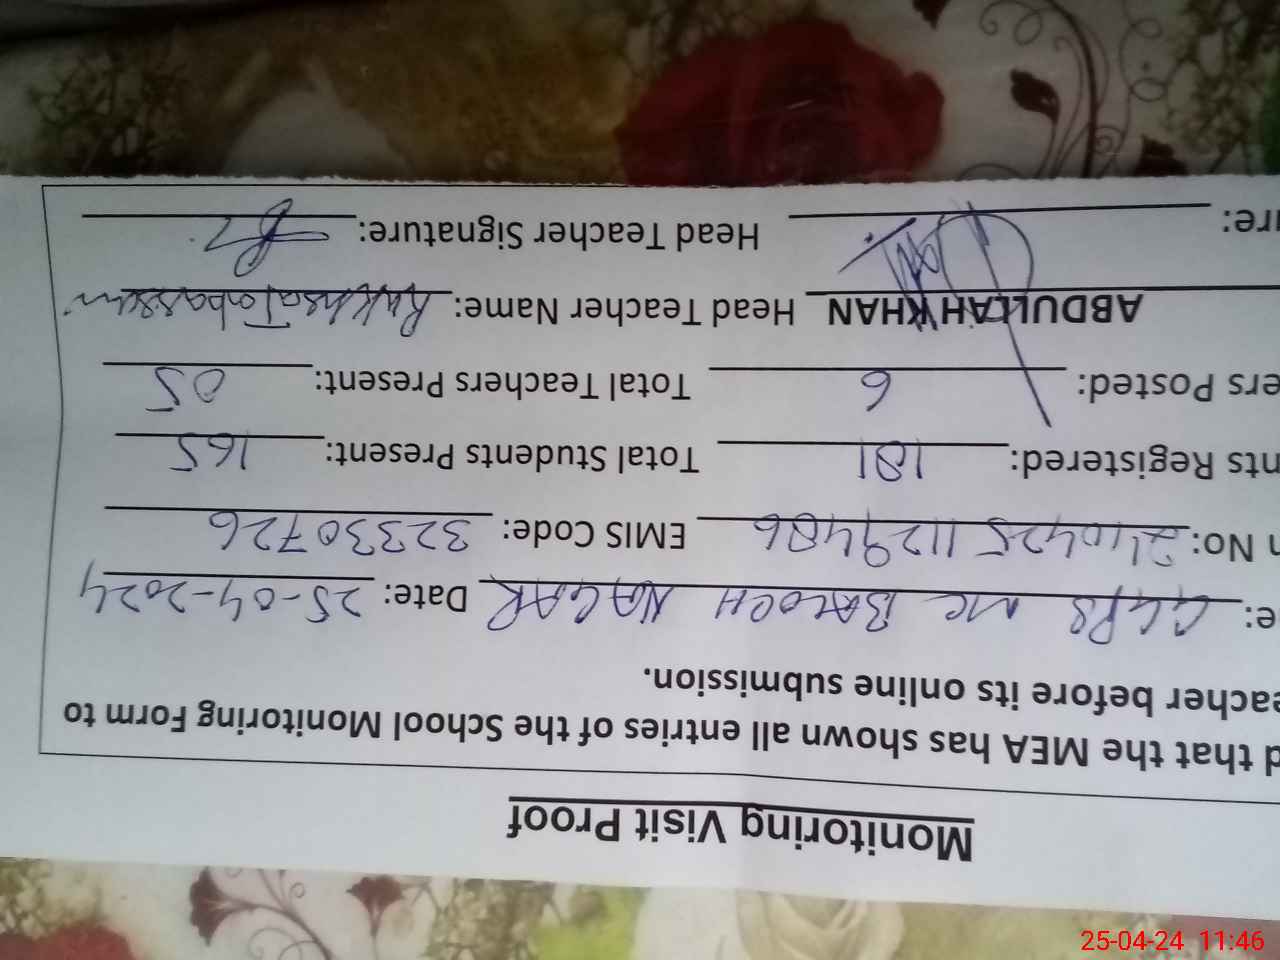 Monitoring Visit Proof
d that the MEA has shown all entries of the School Monitoring Form to
eacher before its online submission.
e: GGPS MC BALOCH NAGAR Date: 25-04-2024
n No: EMIS Code: 32330726
nts Registered: 181 Total Students Present: 165
ers Posted: 6 Total Teachers Present: 05
ABDULLAH KHAN Head Teacher Name:
ure: Head Teacher Signature:
25-04-24 11:46